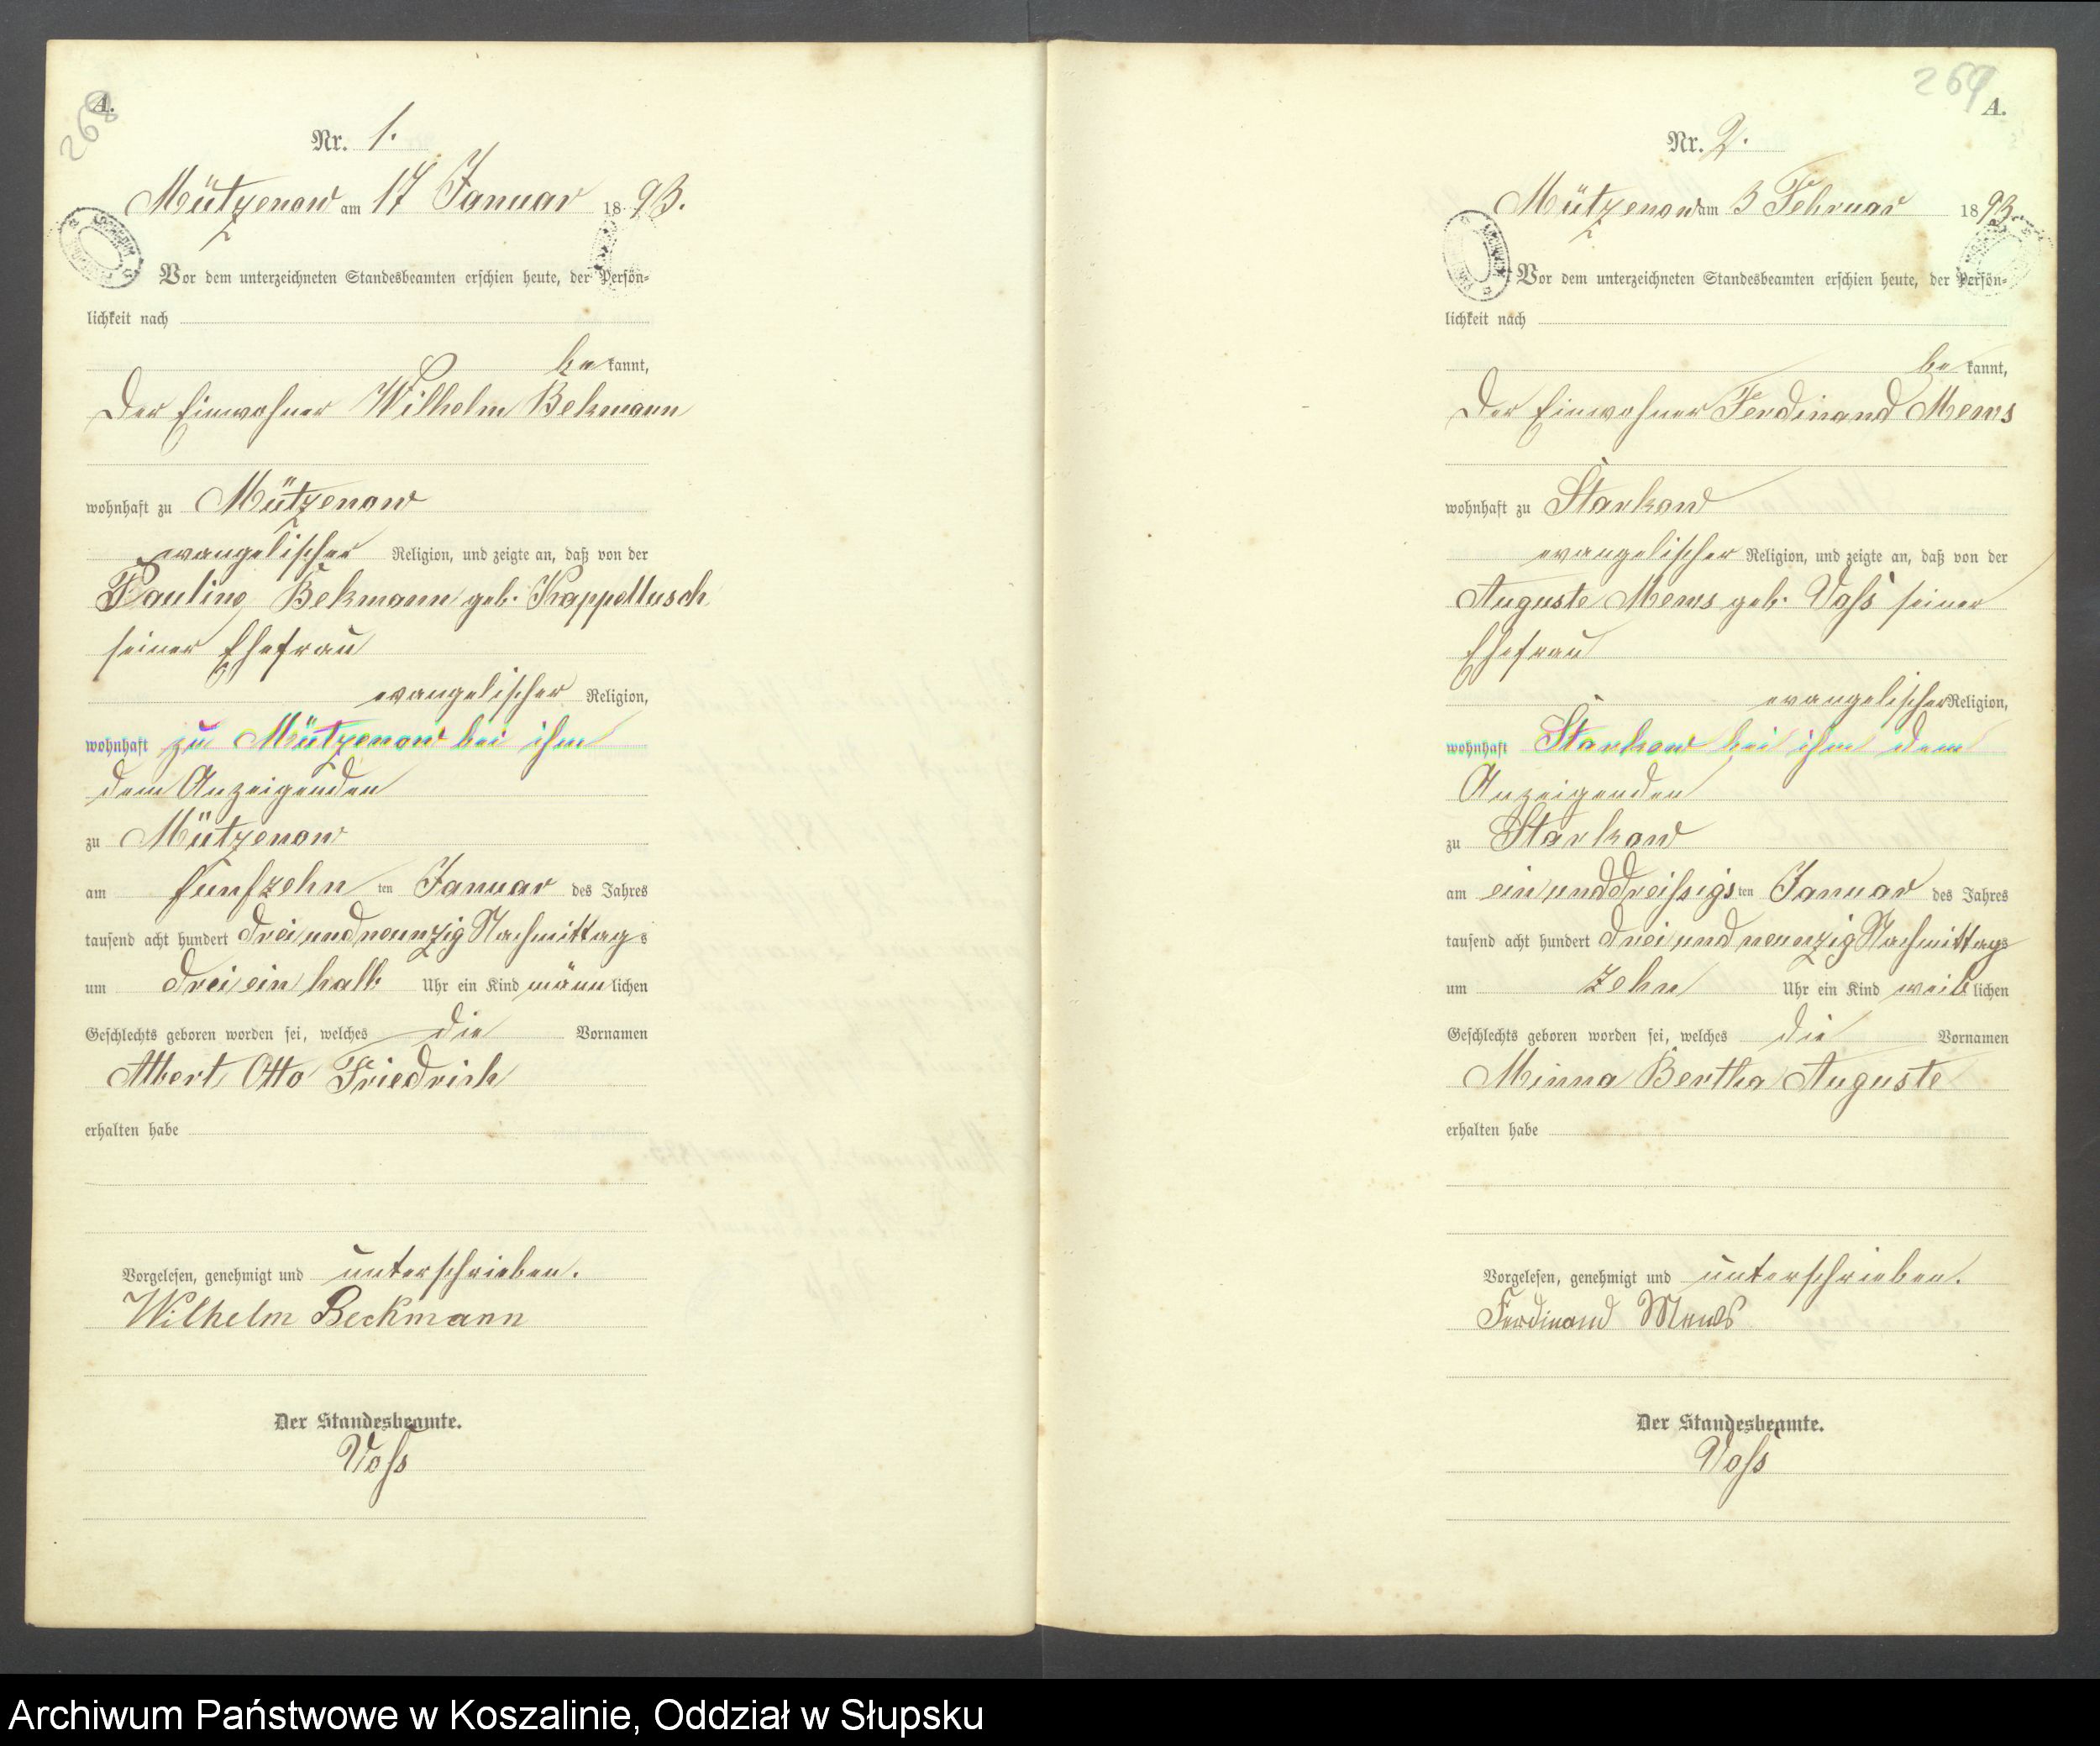 A.
268
Nr. 1.
Mützenow am 17 Januar 1893.
Vor dem unterzeichneten Standesbeamten erschien heute, der Persön-
lichkeit nach
bekannt,
Der Einwohner Wilhelm Bekmann
wohnhaft zu Mützenow
evangelischer Religion, und zeigte an, daß von der
Pauline Bekmann geb. Kappellusch
seiner Ehefrau
evangelischer Religion,
wohnhaft zu Mützenow bei ihm
dem Anzeigenden
zu Mützenow
am fünfzehn ten Januar des Jahres
tausend acht hundert dreiundneunzig Nachmittags
um drei ein halb Uhr ein Kind männlichen
Geschlechts geboren worden sei, welches die Vornamen
Albert Otto Friedrich
erhalten habe
Vorgelesen, genehmigt und unterschrieben.
Wilhelm Beckmann
Der Standesbeamte.
Voß
269
A.
Nr. 2.
Mützenow am 3 Februar 1893.
Vor dem unterzeichneten Standesbeamten erschien heute, der Persön-
lichkeit nach
bekannt,
Der Einwohner Ferdinand Mews
wohnhaft zu Starkow
evangelischer Religion, und zeigte an, daß von der
Auguste Mews geb. Voß seiner
Ehefrau
evangelischer Religion,
wohnhaft Starkow bei ihm dem
Anzeigenden
zu Starkow
am einunddreißigsten Januar des Jahres
tausend acht hundert dreiundneunzig Nachmittags
um zehn Uhr ein Kind weiblichen
Geschlechts geboren worden sei, welches die Vornamen
Minna Bertha Auguste
erhalten habe
Vorgelesen, genehmigt und unterschrieben.
Ferdinand Mews
Der Standesbeamte.
Voß
Archiwum Państwowe w Koszalinie, Oddział w Słupsku